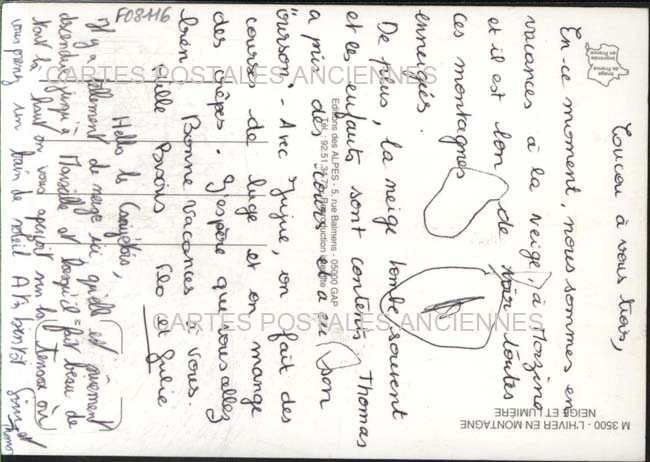 Coucou à vous trois,
En ce moment, nous sommes en
vacances à la neige à Morzine
et il est bon de voir toutes
ces montagnes
enneigées.
De plus, la neige tombe souvent
et les enfants sont contents. Thomas
a pris des cours et a eu son
ourson. - Avec Jujue, on fait des
courses de luge et on mange
des crêpes. J'espère que vous allez
bien Bonne Vacances à vous.
Mille Bisous Flo et Julie
Hello les
Il y a tellement de neige ici qu'elle est sûrement
descendue jusqu'à Marseille et lorsqu'il fait beau de
tout là haut on vous aperçoit sur la terrasse où
vous prenez un bain de soleil A + bientôt
Thomas
F08416
Image de France
Imprimée en France
Editions des ALPES - 5, rue Balmens - 05000 GAP
Tél. 92.51.34.72 - Reproduction interdite
M 3500 - L'HIVER EN MONTAGNE
NEIGE ET LUMIÈRE
CARTES POSTALES ANCIENNES
CARTES POSTALES ANCIENNES